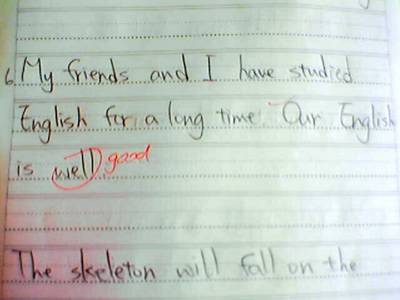 6. My friends and I have studied
English for a long time. Our English
is well good
The skeleton will fall on the